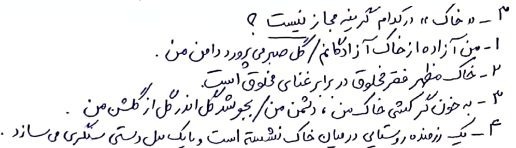 ۳ـ «خاک» در کدام گزینه مجاز نیست؟
۱ـ من آزاده از خاک آزادگانم / گل صبر می پرورد دامن من.
۲ـ خاک مظهر فقر مخلوق در برابر غنای مخلوق است.
۳ـ به خون گر کشی خاک من، دشمن من / بجوشد گل اندر گل از گلشن من.
۴ـ یک رزمنده روستایی در میان خاک نشسته است و با یک بیل دستی سنگری می سازد.